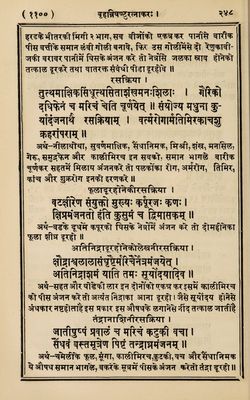 ( ११०० ) बृहन्निघण्टुरत्नाकरः। २४८
हरडके भीतरकी मिगी २ भाग, सब बीजोंको एकत्र कर पानीसे बारीक
पीस वत्तीके समान लंबी गोली बनावे, फिर उस गोलीमेंसे दो रेणुकाबी-
जकी बराबर पानीमें घिसके अंजन करे तो नेत्रोंसे जलका स्राव होनेको
तत्काल दूर करे तथा वातरक्त संबंधी पीडा दूर होवे ॥
रसक्रिया।
तुत्थमाक्षिकसिंधूत्थसिताशंखमनःशिलाः । गैरिको
दधिफेनं च मरिचं चेति चूर्णयेत् ॥ संयोज्य मधुना कु
र्यादंजनार्थं रसक्रियाम् । वर्त्मरोगार्मतिमिरकाचशु
क्रहरांपराम् ॥
अर्थ-नीलाथोथा, सुवर्णमाक्षिक, सैंधानमक, मिश्री, शंख, मनशिल,
गेरू, समुद्रफेन और कालीमिरच इन सबको समान भागले बारीक
चूर्णकर सहतमें मिलाय अंजन करे तो पलकोंका रोग, अर्मरोग, तिमिर,
काच और शुक्ररोग इनको हरण करे ॥
फूला दूर होनेकी रसक्रिया।
वटक्षीरेण संयुक्तो मुख्यः कर्पूरजः कणः ।
क्षिप्रमंजनतो हंति कुसुमं च द्विमासिकम् ॥
अर्थ-बडके दूधमें कपूरको घिसके नेत्रोंमें अंजन करे तो दो महीनेका
फूला शीघ्र दूर हो ॥
अतिनिद्रा दूर होनेको लेखनी रसक्रिया।
क्षौद्राश्वलालासंघृष्टैर्मरिचैर्नेत्रमंजयेत् ।
अतिनिद्राशमं याति तमः सूर्योदयादिव ॥
अर्थ-सहत और घोडेकी लार इन दोनोंको एकत्र कर इसमें कालीमिरच
को पीस अंजन करे तो अत्यंत निद्राका आना दूर हो। जैसे सूर्योदय होनेसे
अंधकार नष्ट होता है इस प्रकार इस औषधके लगानेसे नींद तत्काल जाती है
तंद्रानाशिनी रसक्रिया।
जातीपुष्पं प्रवालं च मरिचं कटुकी वचा ।
सैंधवं बस्तमूत्रेण पिष्टं तन्द्राघ्नमंजनम् ॥
अर्थ-चमेलीके फूल, मूंगा, कालीमिरच, कुटकी, वच और सैंधानमक
ये औषध समान भागले, बकरेके मूत्रमें पीसके अंजन करे तो तंद्रा दूर हो ॥